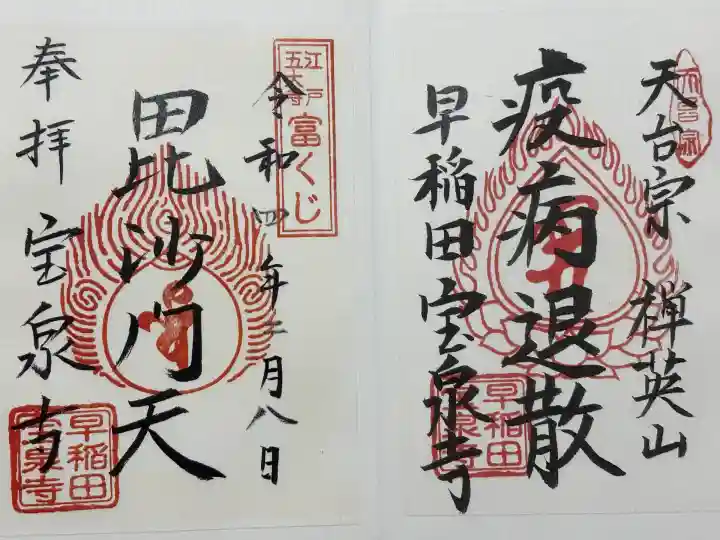 天台宗 禅英山
疫病退散
早稲田 宝泉寺
天台宗
早稲田
宝泉寺
江戸
五大寺
富くじ
令和四年二月八日
毘沙門天
奉拝 宝泉寺
早稲田
宝泉寺